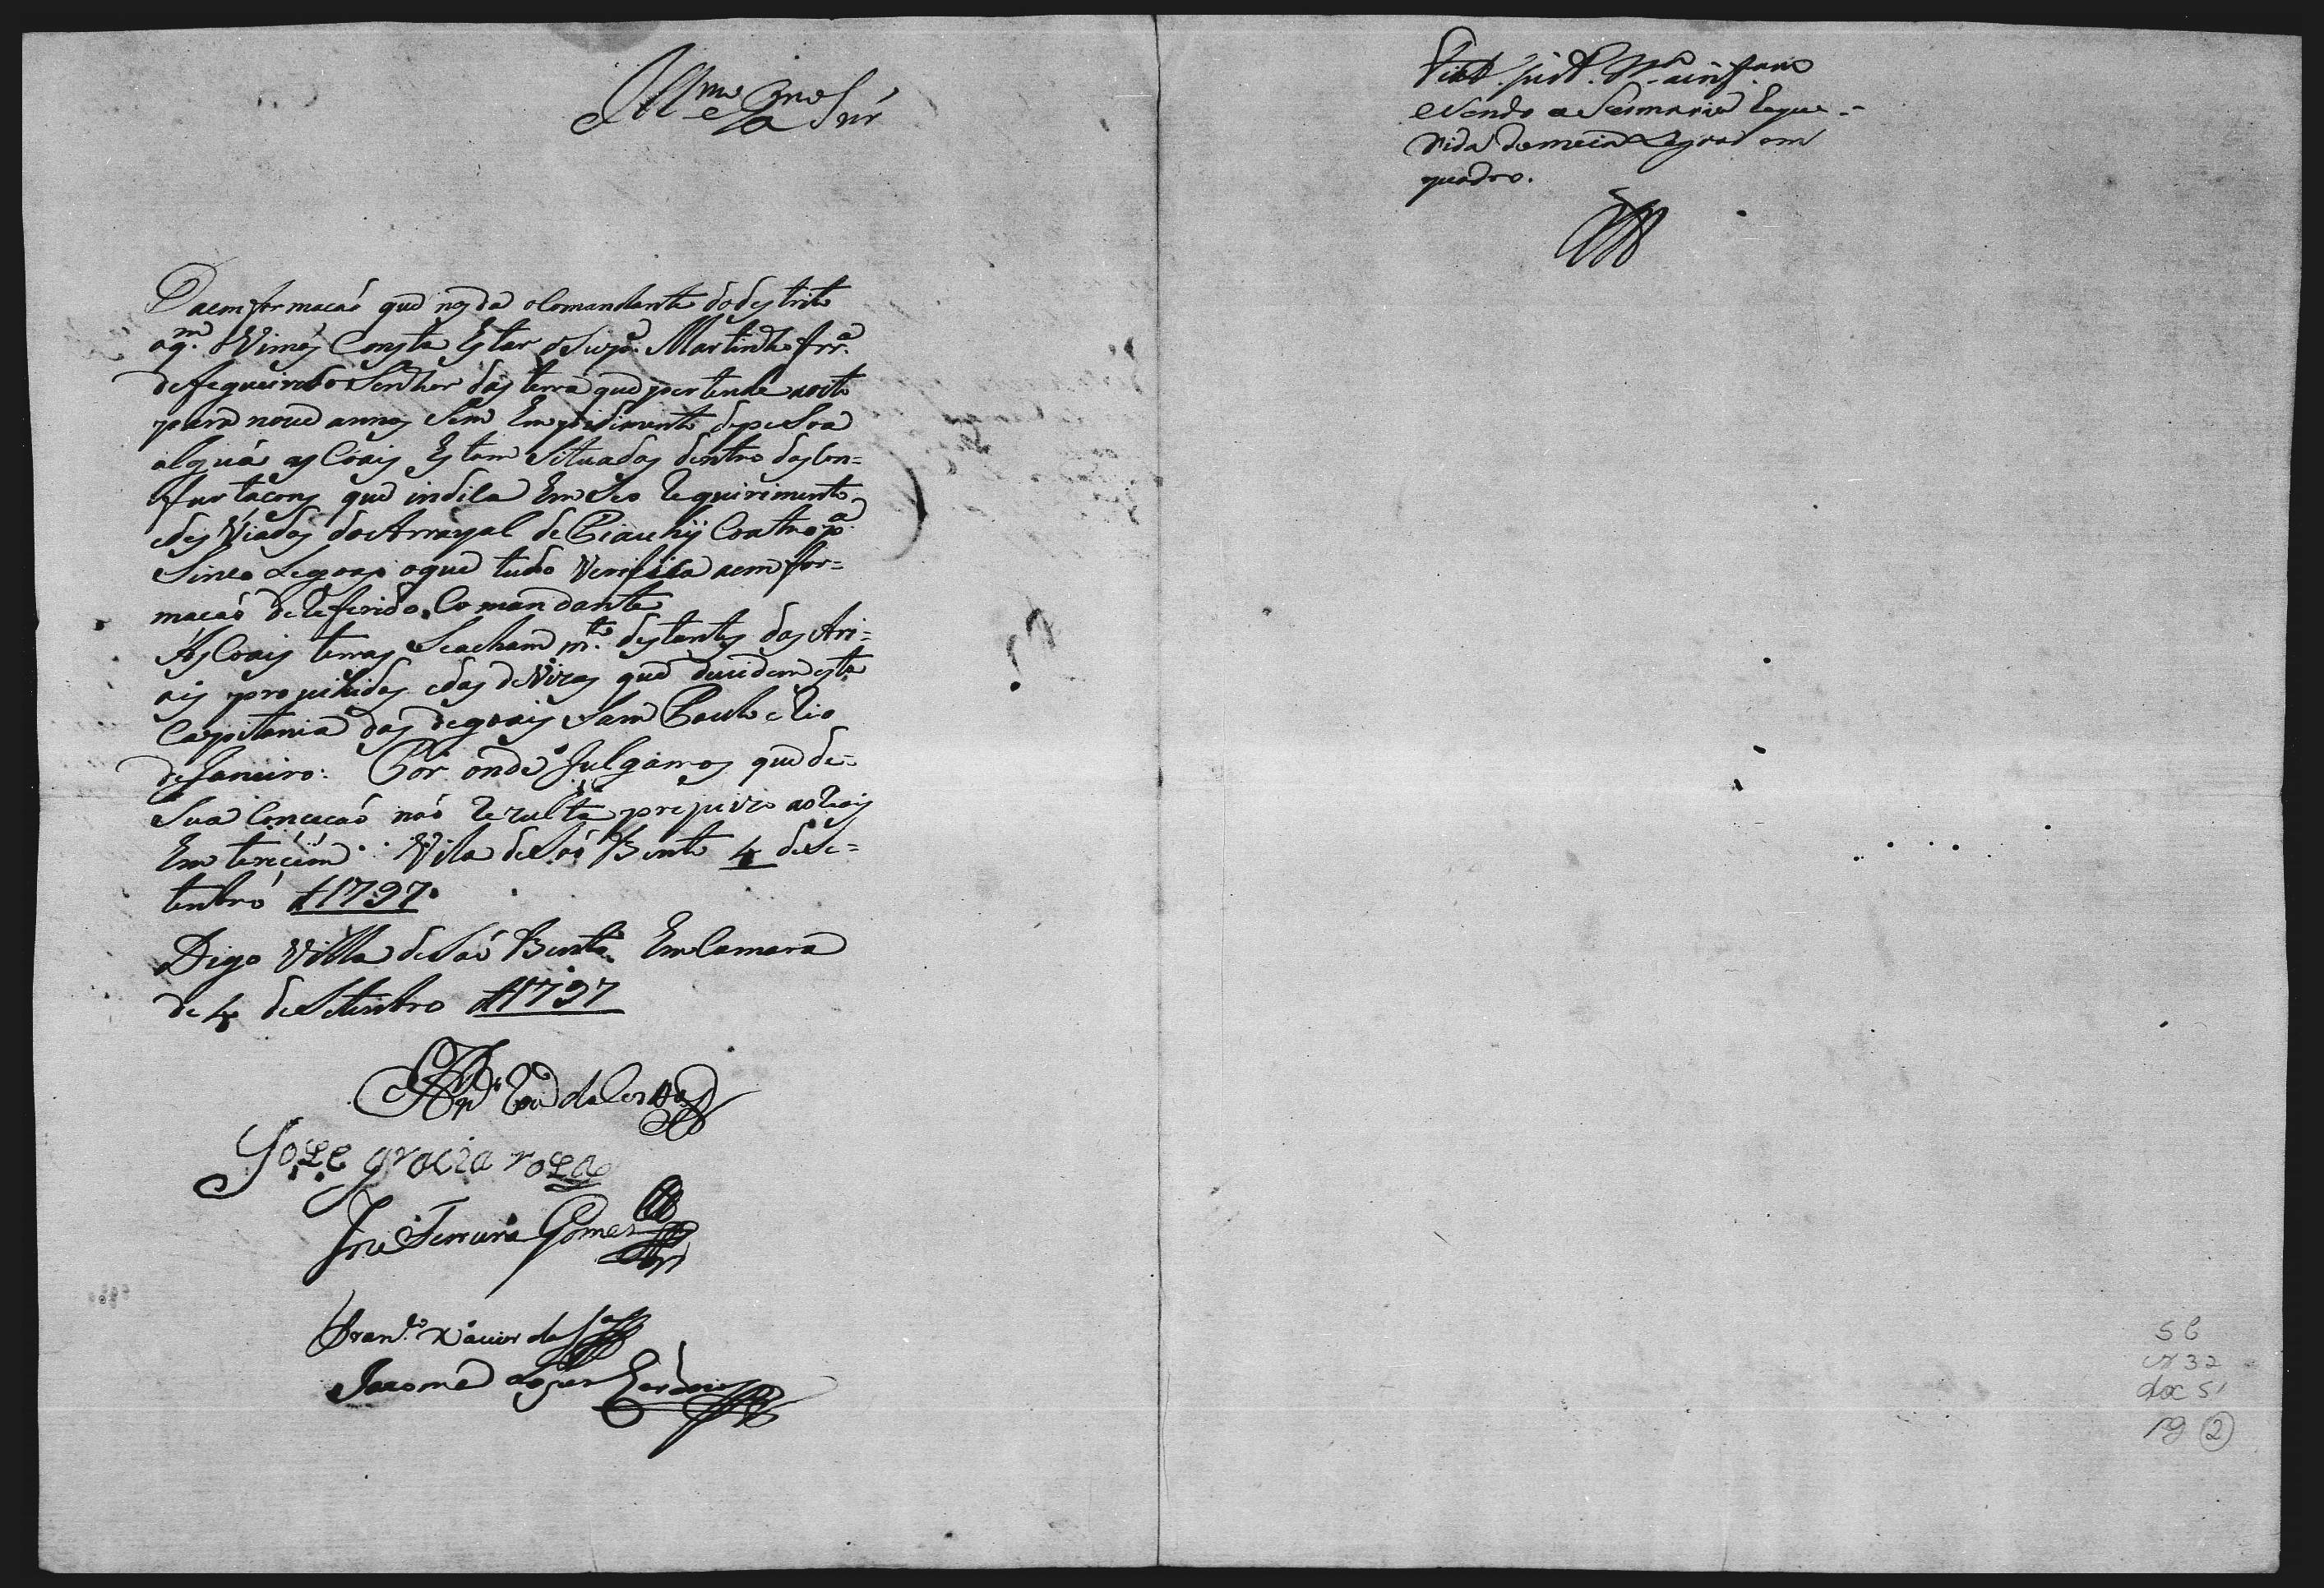 Illmo e Exmo Snr
Daemformacaó que nos da o Comandante do destrito
aqm. Vimos Consta Estar o Supe. Martinho Frra.
de fegueiredo Senhor das terra que pertende a oito
para noue annos Sem Empidimento depeSoa
alguá as Coais Estam Situadas dentro das Con=
furtacons que indica Em Seo Requirimento
e desViadas do Arrayal de Piauhÿ Coatro pa.
Sinco Legoas o que tudo Verifica a emfor=
macaó do Referido Comandante
As Coais terras Se acham mto. destantes das Ari=
ais proruibidas e das deVizas que deuidem esta
Capitania das degoais Sam Paulo e Rio
de Janeiro: Por onde Julgamos que de=
Sua Concecaó naó Rezulta prejuizo as Reais
Emtencim. Vila de Saó Bento 4 de Se=
tenbro d 1797.
Digo Villa de Saó Bento Em Camara
de 4 de Setenbro d 1797
da Costa
Joze gracia roza
Joze Ferreira Gomes
Franco. Xauier da Sa
Jacome
Vist.
e Sendo a Sesmaria Reque-
rida de meia Legoa em
quadro.
S C
cx 32
dox 51
pg 2